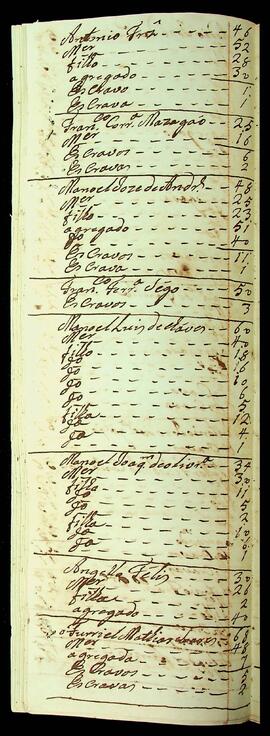 Antonio Frã 46
Mer 52
filho 28
agregado 30
Escravo 1
Escrava 1
Fran.co Corr.a Mazagaõ 25
Mer 16
Escravos 6
Escravas 2
Manoel Joze de Andr.e 48
Mer 25
filho 23
agregado 51
Do 40
Escravos 11
Escrava 1
Fran.co Ferr.a Sego 50
Escravos 3
Manoel Luis de chaves 60
Mer 40
filho 18
Do 16
Do 10
Do 6
Do 5
filha 12
Do 4
Do 1
Manoel Joaq.m de olivr.a 34
Mer 30
filho 11
Do 5
Do 2
filha 10
Do
Do 1
Angelo Felis 30
Mer 26
filha 2
agregado 40
o Furriel Mathias 68
Mer 48
agregada 7
Escravos 5
Escravas 2